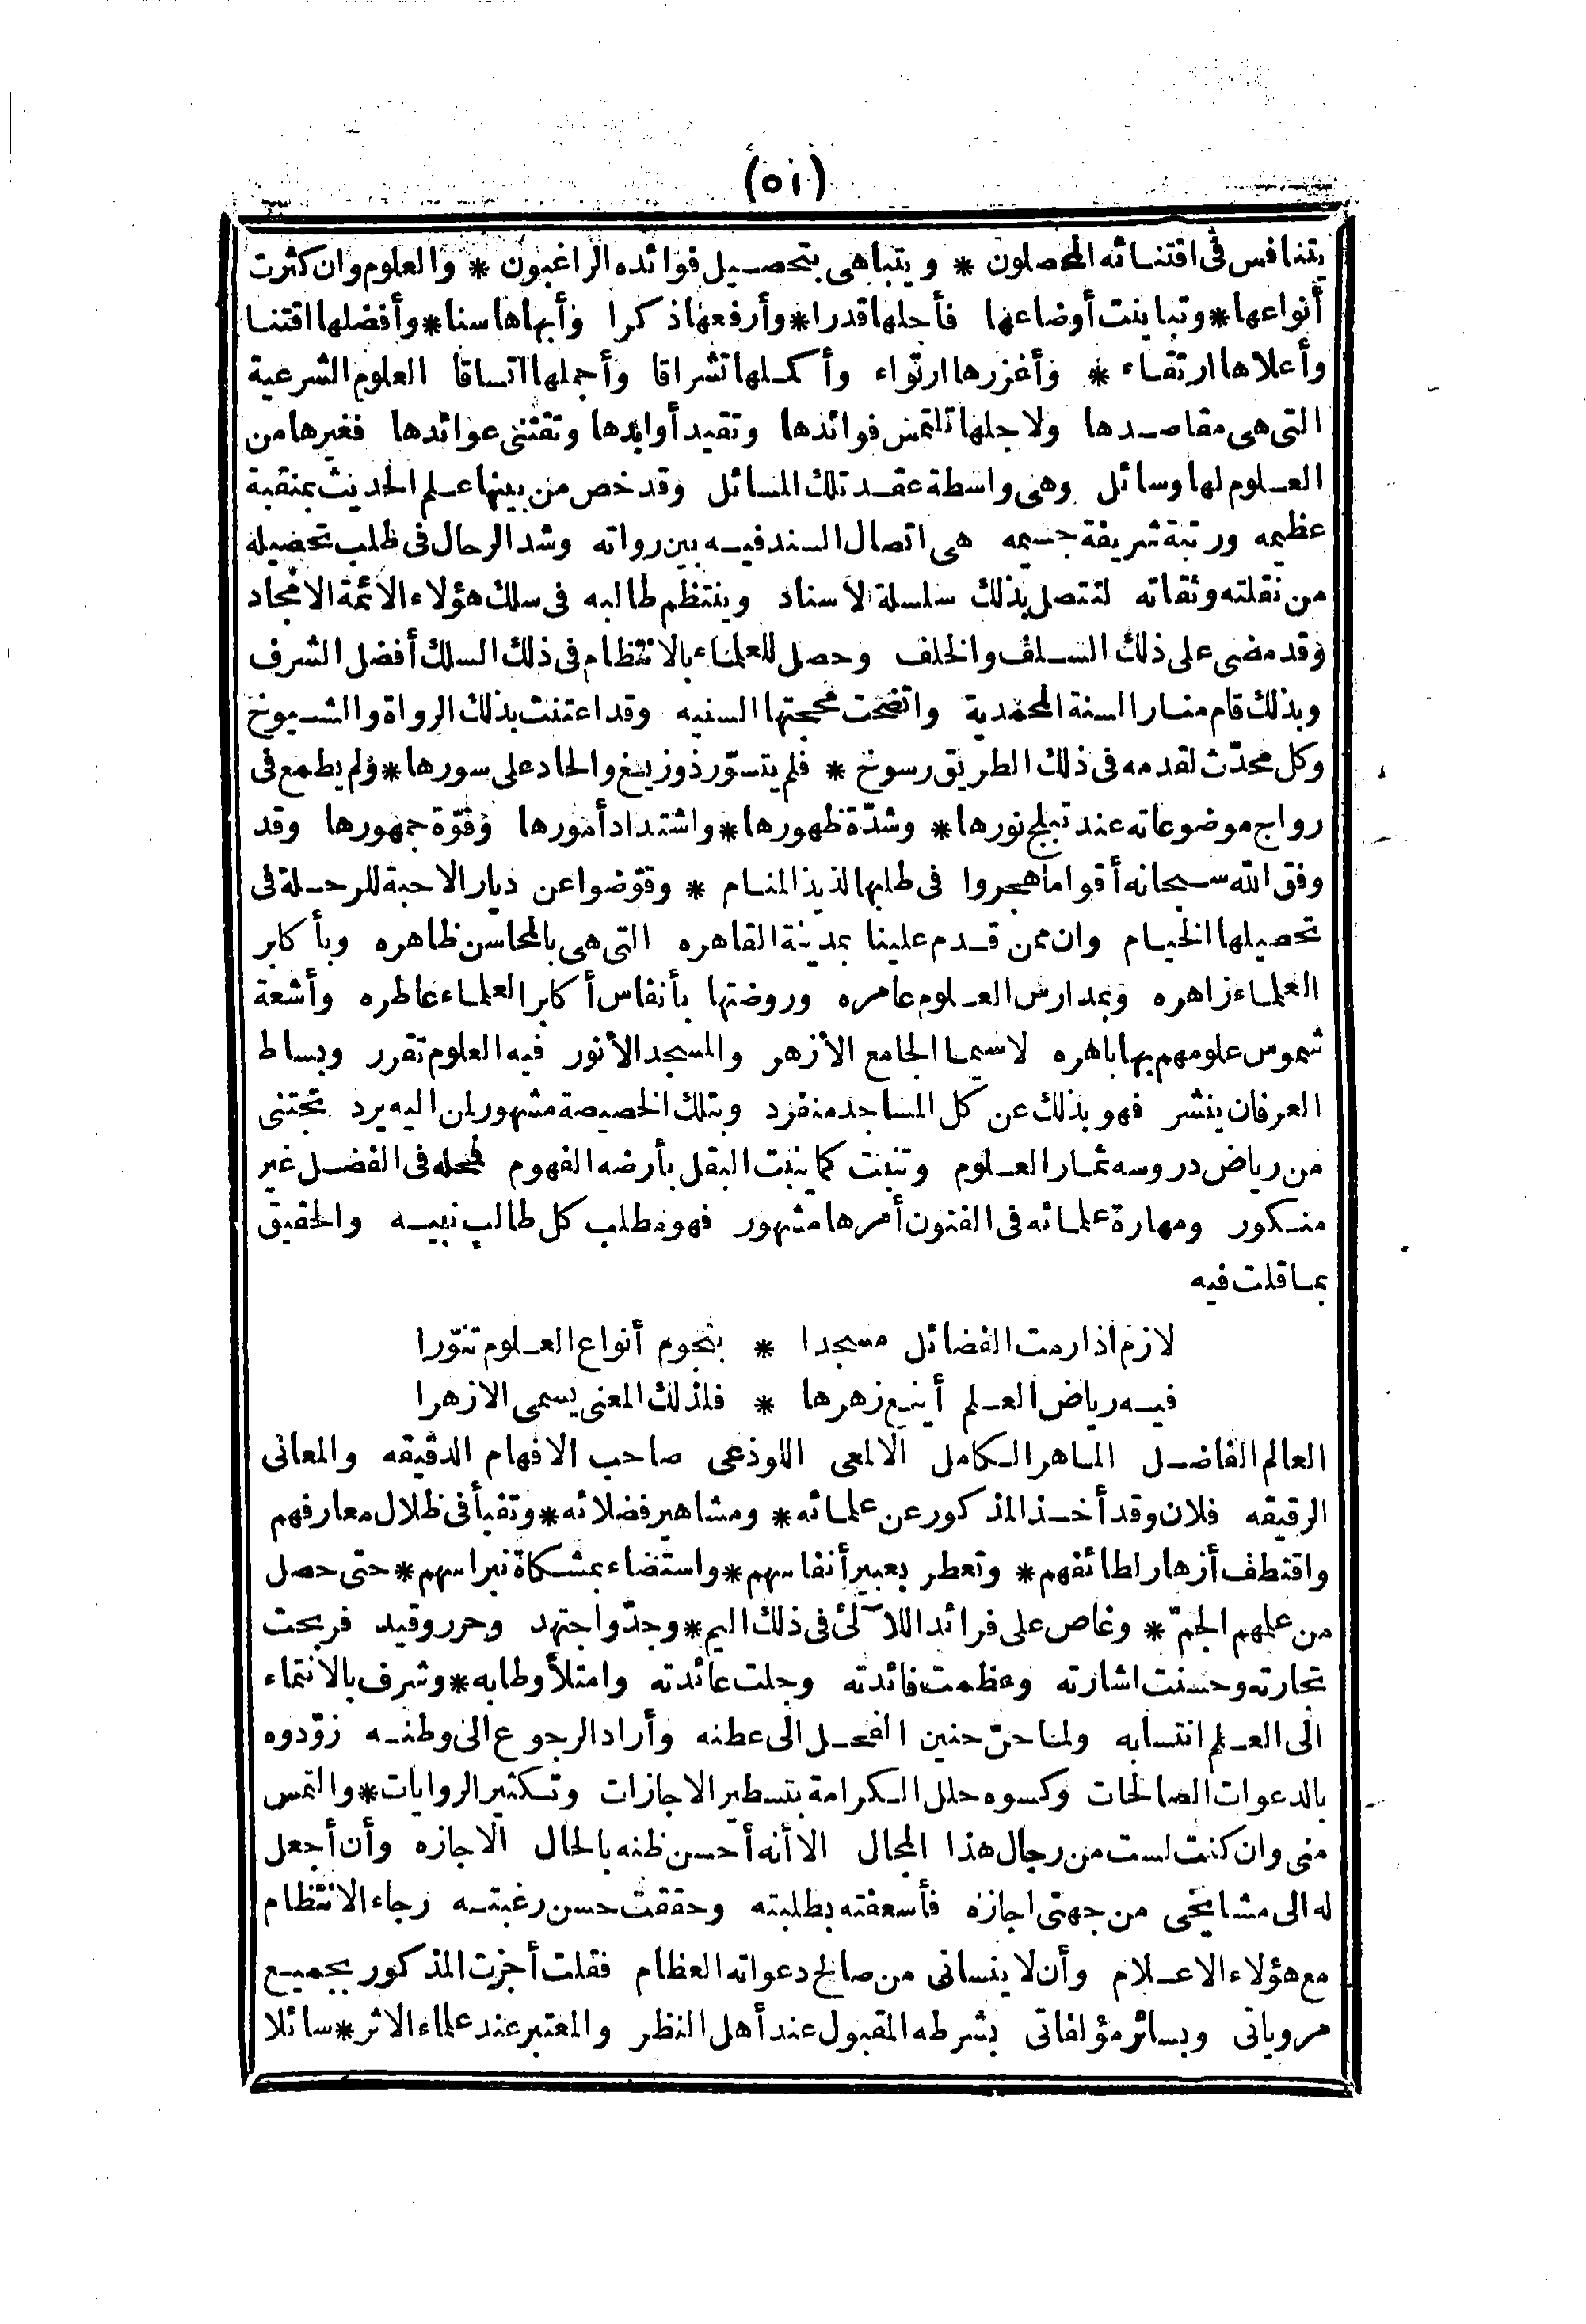 (٥١)
يتنافس فى اقتنائه المحصلون * ويتباهى بتحصيل فوائده الراغبون * والعلوم وان كثرت
أنواعها * وتباينت أوضاعها فأجلها قدرا * وأرفعها ذكرا وأبهاها سنا * وأفضلها اقتنا
وأعلاها ارتقاء * وأغزرها ارتواء وأكملها تشراقا وأجملها اتساقا العلوم الشرعية
التى هى مقاصدها ولاجلها تلتمس فوائدها وتقيد أوابدها وتقتنى عوائدها فغيرها من
العلوم لها وسائل وهى واسطة عقد تلك المسائل وقد خص من بينها علم الحديث بمنقبة
عظيمه ورتبة شريفة جسيمه هى اتصال السند فيه بين رواته وشد الرحال فى طلب تحصيله
من نقلته وثقاته لتتصل بذلك سلسلة الاسناد وينتظم طالبه فى سلك هؤلاء الائمة الامجاد
وقد مضى على ذلك السلف والخلف وحصل للعلماء بالانتظام فى ذلك السلك أفضل الشرف
وبذلك قام منار السنة المحمدية واتضحت محجتها السنيه وقد اعتنت بذلك الرواة والشيوخ
وكل محدّث لقدمه فى ذلك الطريق رسوخ * فلم يتسوّر ذو زيغ والحاد على سورها * ولم يطمع فى
رواج موضوعاته عند تبلج نورها * وشدّة ظهورها * واشتداد أمورها وقوّة جمهورها وقد
وفق الله سبحانه أقواما هجروا فى طلبها لذيذ المنام * وقوّضوا عن ديار الاحبة للرحلة فى
تحصيلها الخيام وان ممن قدم علينا بمدينة القاهره التى هى بالمحاسن ظاهره وبأكابر
العلماء زاهره وبمدارس العلوم عامره وروضتها بأنفاس أكابر العلماء عاطره وأشعة
شموس علومهم بها باهره لاسيما الجامع الأزهر والمسجد الأنور فيه العلوم تقرر وبساط
العرفان ينشر فهو بذلك عن كل المساجد منفرد وبتلك الخصيصة مشهور لمن اليه يرد تجتنى
من رياض دروسه ثمار العلوم وتنبت كما ينبت البقل بأرضه الفهوم فحله فى الفضل غير
منكور ومهارة علمائه فى الفنون أمرها مشهور فهو مطلب كل طالب نبيه والحقيق
بما قلت فيه
لازم اذا رمت الفضائل مسجدا * بنجوم أنواع العلوم تنوّرا
فيه رياض العلم أينع زهرها * فلذلك المعنى يسمى الازهرا
العالم الفاضل الماهر الكامل الالمعى اللوذعى صاحب الافهام الدقيقه والمعانى
الرقيقه فلان وقد أخذ المذكور عن علمائه * ومشاهير فضلائه * وتفيأ فى ظلال معارفهم
واقتطف أزهار لطائفهم * وتعطر بعبير أنفاسهم * واستضاء بمشكاة نبراسهم * حتى حصل
من علمهم الجمّ * وغاص على فرائد اللآلئ فى ذلك اليم * وجدّ واجتهد وحرر وقيد فربحت
تجارته وحسنت اشارته وعظمت فائدته وجلت عائدته وامتلأ وطابه * وشرف بالانتماء
الى العلم انتسابه ولما حنّ حنين الفحل الى عطنه وأراد الرجوع الى وطنه زوّدوه
بالدعوات الصالحات وكسوه حلل الكرامة بتسطير الاجازات وتكثير الروايات * والتمس
منى وان كنت لست من رجال هذا المجال الا أنه أحسن ظنه بالحال الاجازه وأن أجعل
له الى مشايخى من جهتى اجازه فأسعفته بطلبته وحققت حسن رغبته رجاء الانتظام
مع هؤلاء الاعلام وأن لا ينسانى من صالح دعواته العظام فقلت أجزت المذكور بجميع
مروياتى وبسائر مؤلفاتى بشرطه المقبول عند أهل النظر والمعتبر عند علماء الاثر * سائلا